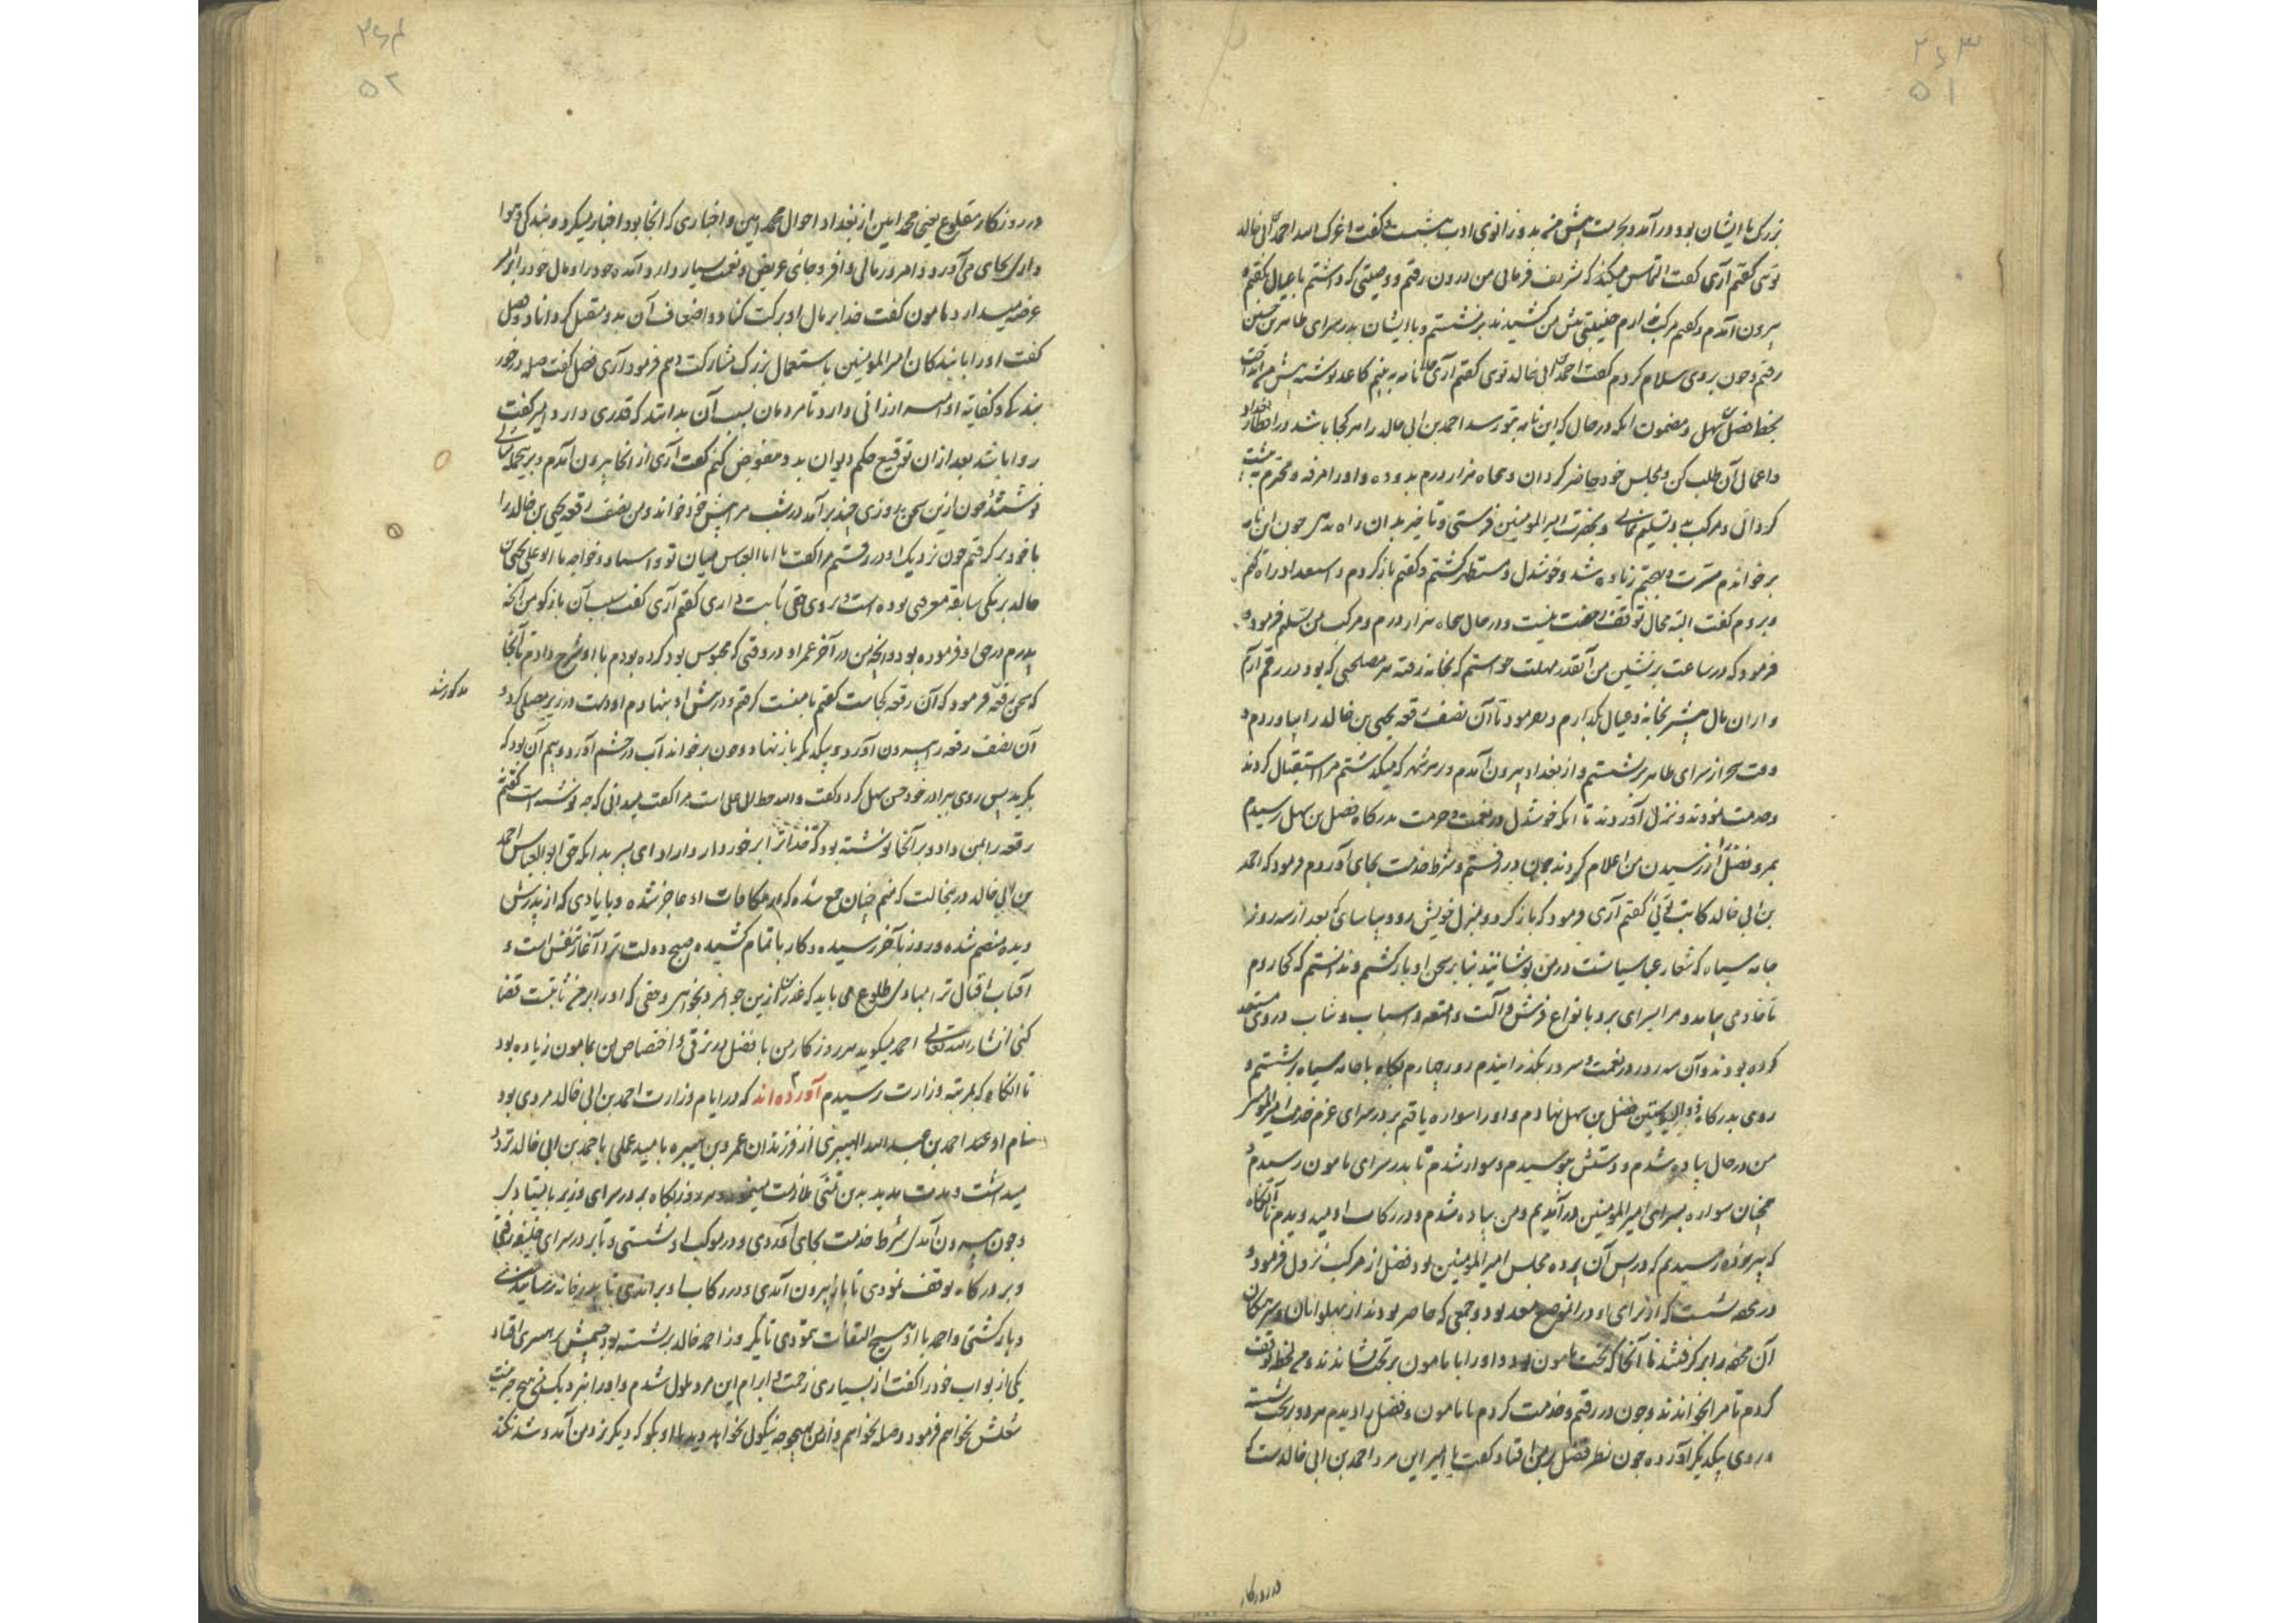 ۲۶۳
۵۱
بزرگ با ایشان بود در آمد و بحرمت پیش من بدو زانوی ادب بنشست و گفت اعزک الله احمد ابی خالد
توئی گفتم آری گفت التماس میکند که تشریف فرمائی من درون رفتم و وصیتی که داشتم با عیال بگفتم و
بیرون آمدم و گفتم مرکب ندارم جنیبتی پیش من کشیدند بر نشستم و با ایشان بدر سرای طاهر بن حسین
رفتم و چون بروی سلام کردم گفت احمد ابی خالد توی گفتم آری نامه به بینم کاغذ نوشته پیش من انداخت
بخط فضل سهل و مضمون آنکه در حال که این نامه بتو رسد احمد بن ابی خالد را هر کجا باشد در اقطار بغداد
و اعمال آن طلب کن و بمجلس خود حاضر گردان و پنجاه هزار درم بدو ده و او را مرفه و محترم
گردانی و مرکب بدو تسلیم نمائی و بحضرت امیر المومنین فرستی و تاخیر بدان راه ندهی چون این نامه
بر خواندم مسرت و بهجتم زیاده شد و خوشدل و مستظهر گشتم و گفتم باز گردم و استعداد راه کنم
و بروم گفت البته مجال توقف و رخصت نیست و در حال پنجاه هزار درم و مرکب بمن تسلیم فرمود و
فرمود که در ساعت بر نشین من آنقدر مهلت خواستم که بخانه رفته هر مصلحتی که بود در رقم آرم
و از ان مال بیشتر بخانه و عیال بگذارم و بفرمود تا آن نصف رقعه یحیی بن خالد را بیاوردم و
وقت سحر از سرای طاهر بر نشستم و از بغداد بیرون آمدم و در هر شهر که میگذشتم مرا استقبال کردند
و خدمت نمودند و نزل آوردند تا آنکه خوشدل در نعمت و حرمت بدرگاه فضل بن سهل رسیدم
بمرو فضل را از رسیدن من اعلام کردند چون در رفتم و شرط خدمت بجای آوردم فرمود که احمد
بن ابی خالد کاتب توئی گفتم آری فرمود که باز گرد و بمنزل خویش رو و بیاسای که بعد از سه روز
جامه سیاه که شعار عباسیانست در من پوشانیدند بنا بر سخن او باز گشتم و ندانستم که کجا روم
تا خادمی بیامد و مرا بسرای برد با انواع فرش و آلت و امتعه و اسباب و ثیاب در وی مستعد
کرده بودند و آن سه روز در نعمت و سرور بگذرانیدم روز چهارم پگاه با جامه سیاه بر نشستم و
روی بدرگاه ذو الریاستین فضل بن سهل نهادم و او را سواره یافتم بر در سرای عزم خدمت امیر المومنین
من در حال پیاده شدم و دستش ببوسیدم و سوار شدم تا بدر سرای مامون رسیدم و
همچنان سواره بسرای امیر المومنین در آمدیم و من پیاده شدم و در رکاب او میدویدم تا آنگاه
که بپرده رسیدیم که در پس آن پرده مجلس امیر المومنین بود فضل از مرکب نزول فرمود و
در محفه نشست که از برای او در انموضع معد بود و جمعی که حاضر بودند از پهلوانان و سرهنگان
آن محفه را بر گرفتند تا آنجا که تخت مامون بود و او را با مامون بر تخت نشاندند و من لحظه توقف
کردم تا مرا بخواندند و چون در رفتم و خدمت کردم تا مامون و فضل را دیدم هر دو بر تخت نشسته
و روی بیکدیگر آورده چون نظر فضل بر من افتاد گفت یا امیر این مرد احمد بن ابی خالد است که
در روزگار
۲۶۴
۵۲
در روزگار مقلوع یعنی محمد امین از بغداد احوال محمد امین و اخباری که آنجا بود اخبار میکرد و بندگی و هوا
داری بجای می آورد و امروز مالی وافر و جائی عریض و نعمت بسیار دارد آمده خود را و مال خود را بر
عرضه میدارد مامون گفت خدا بر مال او برکت کناد و اضعاف آن بدو متقبل گرداناد فضل
گفت او را با بندگان امیر المومنین باستعمال بزرگ مشارکت دهم فرمود آری فضل گفت صله در خور
بندگی و کفایه او ارزانی دارد تا مردمان بسبب آن بدانند که قدری دارد امیر گفت
روا باشد بعد از ان توقیع حکم دیوان بدو مفوض کنم گفت آری از انجا بیرون آمدم
نوشتند چون ازین سخن روزی چند بر آمد در شب مرا پیش خود خواند و من نصف رقعه یحیی بن خالد را
با خود بر گرفتم چون نزدیک او در رفتم مرا گفت یا ابا العباس میان تو و استاد و خواجه ما ابو علی یحیی بن
خالد برمکی سابقه معرفتی بوده است و بروی حقی ثابت داری گفتم آری گفت سبب آن باز گو من آنچه
پدرم در حق او فرموده بود و آنچه من در آخر عمر او در وقتی که محبوس بود کرده بودم با او شرح دادم تا آنجا
که سخن رقعه فرمود که آن رقعه کجاست گفتم با منست گرفتم و در پیش او بنهادم او دست در زیر مصلی کرد و
مذکور شد
آن نصف رقعه بیرون آورد و بیکدیگر باز نهاد و چون بر خواند آب در چشم آورد و بیم آن بود که
بگرید پس روی ببرادر خود حسن سهل کرد و گفت والله خط ابو علی است مرا گفت میدانی که چه نوشته است گفتم
رقعه را بمن داد و بر آنجا نوشته بود که خدا ترا بر خوردار داراد ای پسر بدانکه حق ابو العباس احمد
بن ابی خالد در بنحالت که منم چنان جمع شده که از مکافات او عاجز شده و با یادی که از پدرش
دیده منضم شده و روز بآخر رسیده و کار باتمام کشیده صبح دولت ترا آغاز تنفس است و
آفتاب اقبال ترا مبادی طلوع می باید که عذر من ازین جوانمرد بخواهی و حقی که او را بر من ثابتست قضا
کنی انشاء الله تعالی احمد میگوید هر روز کار من با فضل در ترقی و اختصاص من بمامون زیاده بود
تا آنگاه که بمرتبه وزارت رسیدم آورده اند که در ایام وزارت احمد بن ابی خالد مردی بود
نام او عند احمد بن عبد الله الهبیری از فرزندان عمرو بن هبیره بامید عملی با احمد بن ابی خالد تردد
میداشت و مدت مدید بدین تمنی ملازمت مینمود و هر روز پگاه بر در سرای وزیر بایستادی
و چون بیرون آمدی شرط خدمت بجای آوردی و در موکب او نشستی و تا بر در سرای خلیفه رفتی
و بر درگاه توقف نمودی تا باز بیرون آمدی و در رکاب او براندی تا بدر خانه رسانیدی
و باز گشتی و احمد با او هیچ التفات ننمودی تا یکروز احمد خالد بر نشسته بود چشمش بر هبیری افتاد
یکی از بواب خود را گفت از بسیاری زحمت و ابرام این مرد ملول شدم و او را بنزدیک من هیچ حرمت نیست
شغلش نخواهم فرمود و صله نخواهم داد و من بهیچوجه نیکوئی نخواهد دید با او بگو که دیگر نزد من آمد و شد نکند